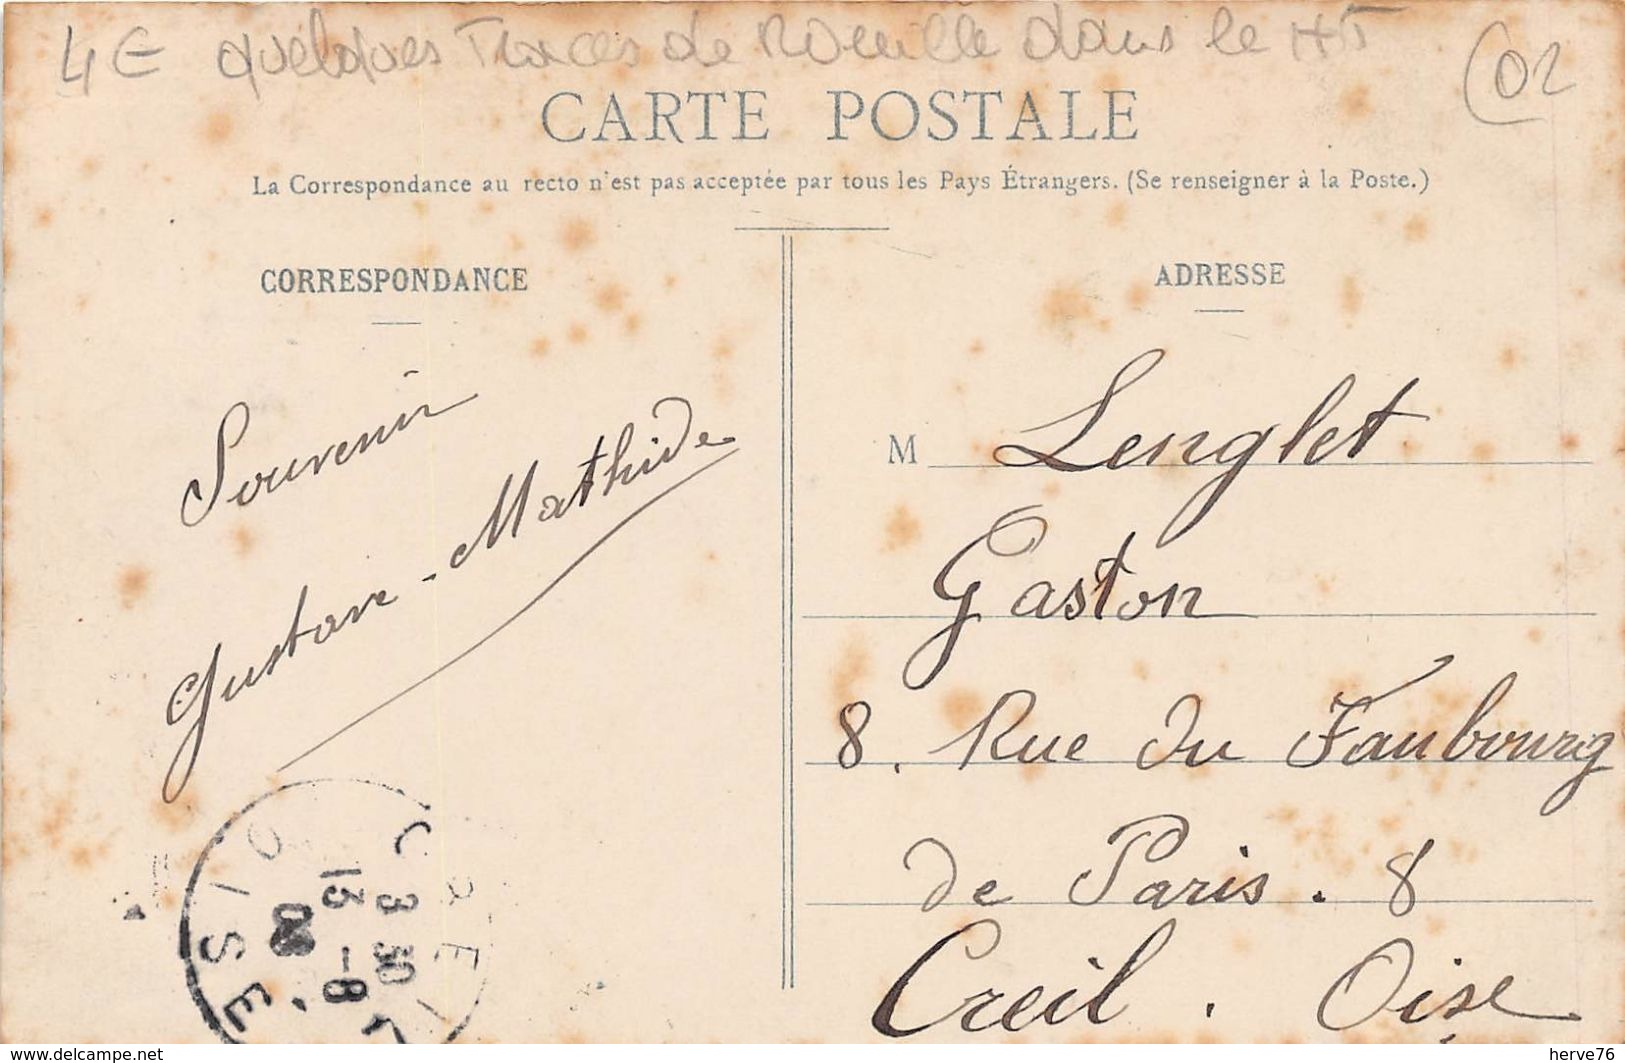 4€ quelques Traces de Rouille dans le HT
02
CARTE POSTALE
La Correspondance au recto n'est pas acceptée par tous les Pays Étrangers. (Se renseigner à la Poste.)
CORRESPONDANCE
Souvenir
Gustave - Mathide
ADRESSE
M Lenglet
Gaston
8. Rue du Faubourg
de Paris. 8
Creil. Oise
CREIL
3 30
13 -8
08
OISE
www.delcampe.net
herve76